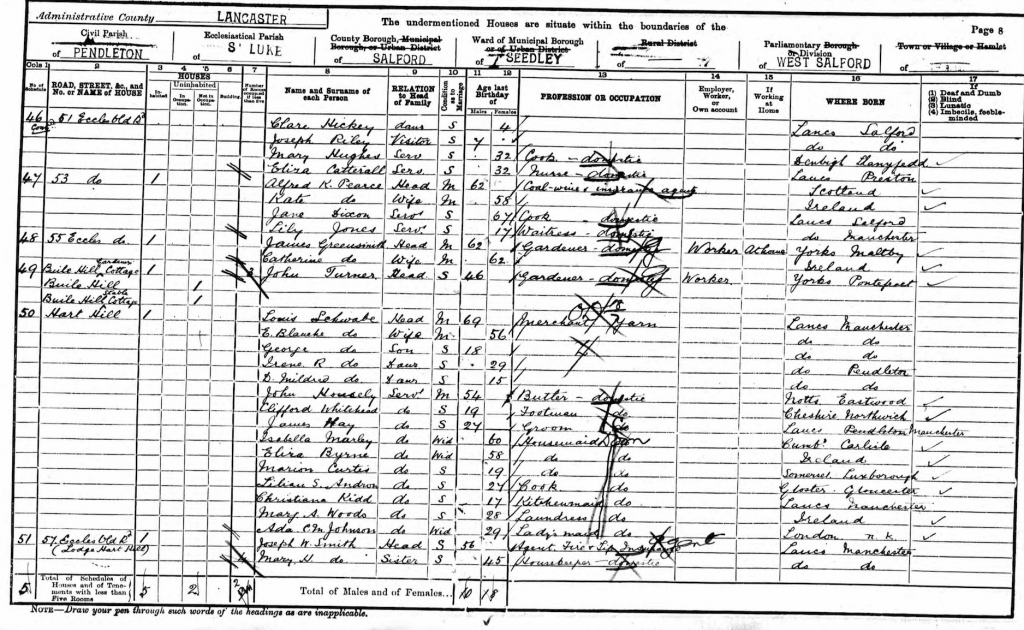 Administrative County LANCASTER The undermentioned Houses are situate within the boundaries of the Page 8
Civil Parish Ecclesiastical Parish County Borough, Municipal Borough, or Urban District Ward of Municipal Borough or of Urban District Rural District Parliamentary Borough or Division Town or Village or Hamlet
of PENDLETON of St LUKE of SALFORD of SEEDLEY of of WEST SALFORD of
Cols 1 2 3 4 5 6 7 8 9 10 11 12 13 14 15 16 17
No. of Schedule ROAD, STREET, &c., and No. or NAME of HOUSE HOUSES Inhabited Uninhabited In Occupation Not in Occupation Building Name and Surname of each Person RELATION to Head of Family Condition as to Marriage Age last Birthday of Males Females PROFESSION OR OCCUPATION Employer, Worker, or Own account If Working at Home WHERE BORN If (1) Deaf and Dumb (2) Blind (3) Lunatic (4) Imbecile, feeble-minded
46 51 Eccles Old Rd Clare Hickey daur S 4 Lancs Salford
Cont Joseph Riley Visitor S 7 do do
Mary Hughes Serv S 32 Cook - domestic Denbigh
Eliza Catterall Serv S 32 Nurse - domestic Lancs Preston
47 53 do 1 Alfred K. Pearce Head M 62 Coal-wine & insurance agent Scotland
Kate do Wife M 58 Ireland
Jane Dixon Servt S 67 Cook - domestic Lancs Salford
Lily Jones Servt S 17 Waitress - domestic do Manchester
48 55 Eccles do 1 James Greensmith Head M 62 Gardener - domestic Worker At home Yorks Maltby
Catherine do Wife M 62 Ireland
49 Buile Hill Gardener Cottage 1 John Turner Head S 46 Gardener - domestic Worker Yorks Pontefract
Buile Hill 1
Buile Hill Stable Cottage 1
50 Hart Hill 1 Louis Schwabe Head M 69 Merchant Yarn Lancs Manchester
E. Blanche do Wife M 56 do do
George do Son S 18 do do
Irene R do Daur S 29 do Pendleton
D. Mildred do Daur S 15 do do
John Housely Servt M 54 Butler - domestic Notts Eastwood
Clifford Whitehead do S 19 Footman do Cheshire Northwich
James Hay do S 27 Groom do Lancs Pendleton Manchester
Isabella Marley do Wid 60 Housemaid Dom Cumbd Carlisle
Eliza Byrne do Wid 58 do do Ireland
Marion Curtis do S 19 do do Somerset Luxborough
Lilian S. Andrew do S 27 Cook do Gloster Gloucester
Christiana Kidd do S 17 Kitchenmaid do Lancs Manchester
Mary A. Woods do S 28 Laundress do Ireland
Ada C. M. Johnson do Wid 29 Lady's maid do London n.k.
51 57 Eccles Old Rd 1 Joseph W. Smith Head S 56 Agent Fire & Life Insurance Agent Lancs Manchester
(Lodge Hart Hill) Mary H. do Sister S 45 Housekeeper - domestic do do
5 Total of Schedules of Houses and of Tenements with less than Five Rooms 5 2 Total of Males and of Females... 10 18
NOTE—Draw your pen through such words of the headings as are inapplicable.